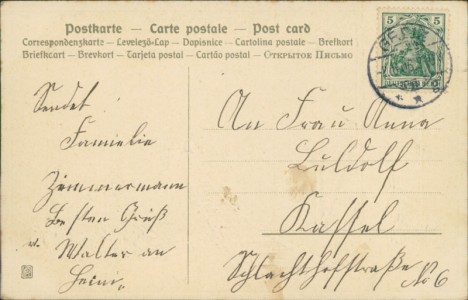 Postkarte – Carte postale – Post card
Correspondenzkarte – Levelező-Lap – Dopisnice – Cartolina postale – Brefkort
Briefkaart – Brevkort – Tarjeta postal – Cartão postal – Открытое Письмо
5 5
Sendet
Familie
Zimmermann
Besten Gruß
v. Walter an
Heini
An Frau Anna
Luldolf
Kassel
Schlachthofstraße No 6